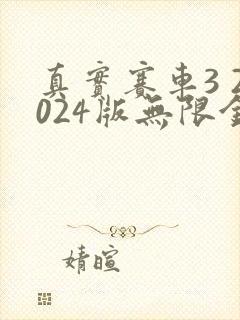 真實賽車3 2
024版無限金
婧暄